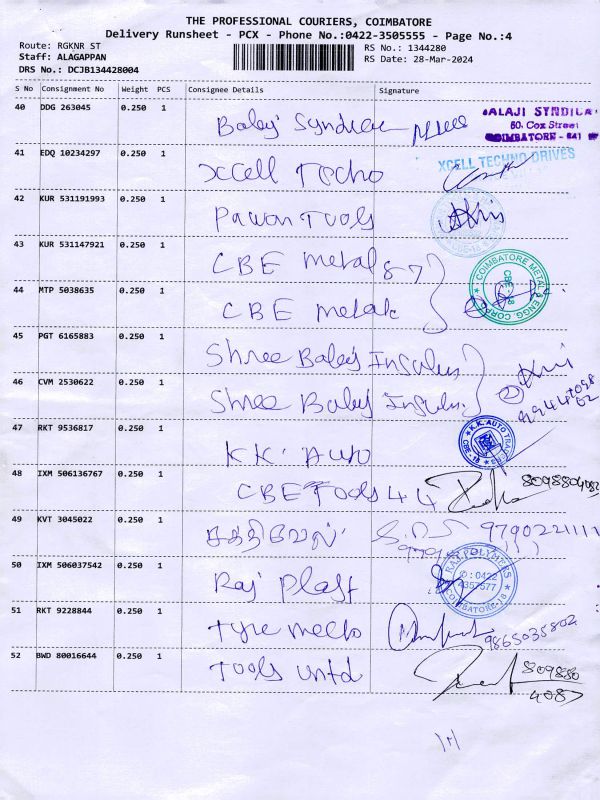 THE PROFESSIONAL COURIERS, COIMBATORE
Delivery Runsheet - PCX - Phone No.:0422-3505555 - Page No.:4
Route: RGKNR ST RS No.: 1344280
Staff: ALAGAPPAN RS Date: 28-Mar-2024
DRS No.: DCJB134428004
S No Consignment No Weight PCS Consignee Details Signature
40 DDG 263045 0.250 1
ALAJI SYNDICA
60, Cox Street
COIMBATORE - 641
41 EDQ 10234297 0.250 1 Xcell Techo XCELL TECHNO DRIVES
42 KUR 531191993 0.250 1 Pawan Tools
43 KUR 531147921 0.250 1 CBE metal 87
COIMBATORE METAL & ENGG CORPN.
CBE-18
44 MTP 5038635 0.250 1 CBE
45 PGT 6165883 0.250 1 Shree
46 CVM 2530622 0.250 1 Shree
47 RKT 9536817 0.250 1 KK. Auto K.K. AUTO
CBE - 18
48 IXM 506136767 0.250 1 CBE Tools 44
49 KVT 3045022 0.250 1 சக்திவேல் 9790221111
50 IXM 506037542 0.250 1 Raj Plast
RAJ POLYMERS
✆ : 0422
4357577
COIMBATORE-18
51 RKT 9228844 0.250 1 Tyre 9865035802
52 BWD 80016644 0.250 1 Tools untd 809880
4087